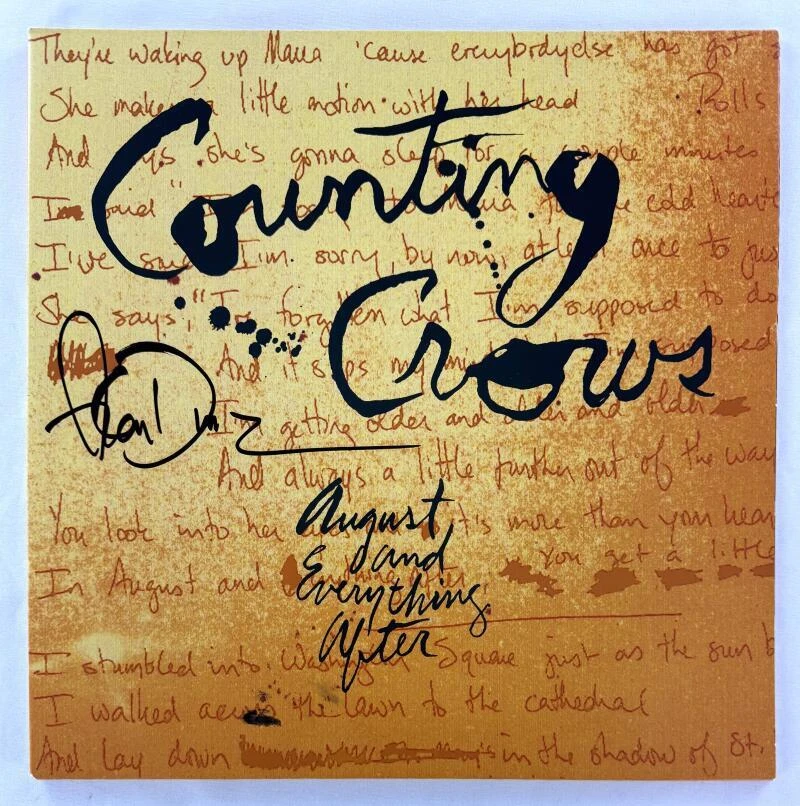 They're waking up Maria 'cause everybodyelse has got s
She makes a little motion with her head Rolls
And says she's gonna sleep for a couple minutes
Counting
I'm said "I'm sorry" to Maria for the cold hearte
I've said I'm sorry by now, at least once to jus
She says, "I've forgotten what I'm supposed to do
Crows
And it slips my mind I'm supposed
I'm getting older and older and older
And always a little further out of the way
August
and
Everything
After
You look into her it's more than your hear
You get a little
In August and Everything After
I stumbled into Washington Square just as the sun b
I walked across the lawn to the cathedral
And lay down in the shadow of St.